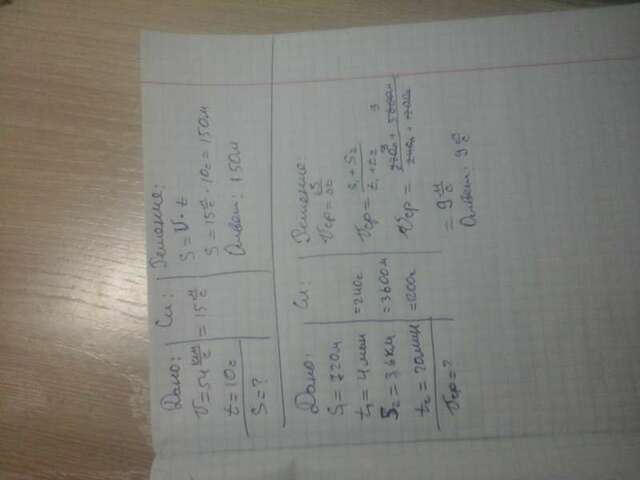 Дано:
V=54 км/с
t=10с
S=?
Си:
=15 м/с
Решение:
S=V·t
S=15 м/с · 10с=150м
Ответ: 150м
Дано:
S₁=720м
t₁=4мин
S₂=3,6км
t₂=20мин
Vср=?
Си:
=240с
=3600м
=1200с
Решение:
Vср=
Vср= S₁+S₂ / t₁+t₂
Vср=
= 9 м/с
Ответ: 9 м/с